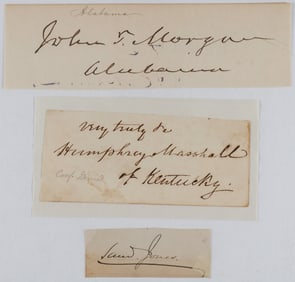 Alabama
John T. Morgan
Alabama
very truly &c
Humphrey Marshall
of Kentucky.
Saml. Jones.